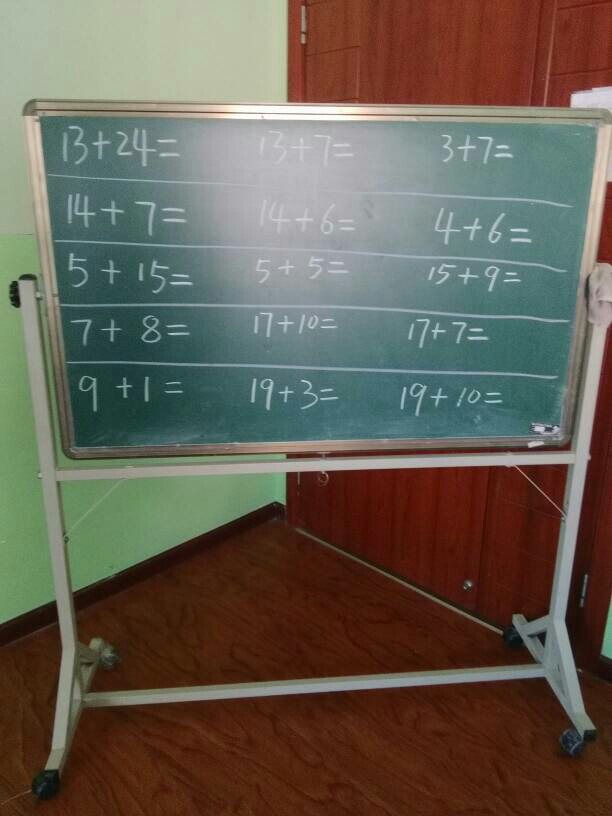 13+24= 13+7= 3+7=
14+7= 14+6= 4+6=
5+15= 5+5= 15+9=
7+8= 17+10= 17+7=
9+1= 19+3= 19+10=